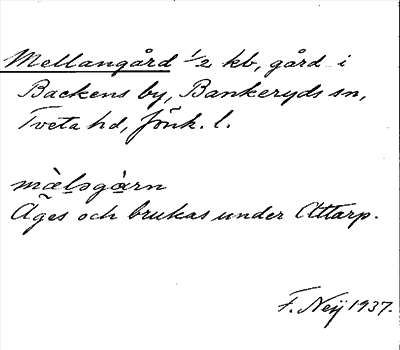 Mellangård 1/2 kb, gård i
Backens by, Bankeryds sn,
Tveta hd, Jönk. l.
mèlsgàrn
Äges och brukas under Attarp.
F. Neij 1937.